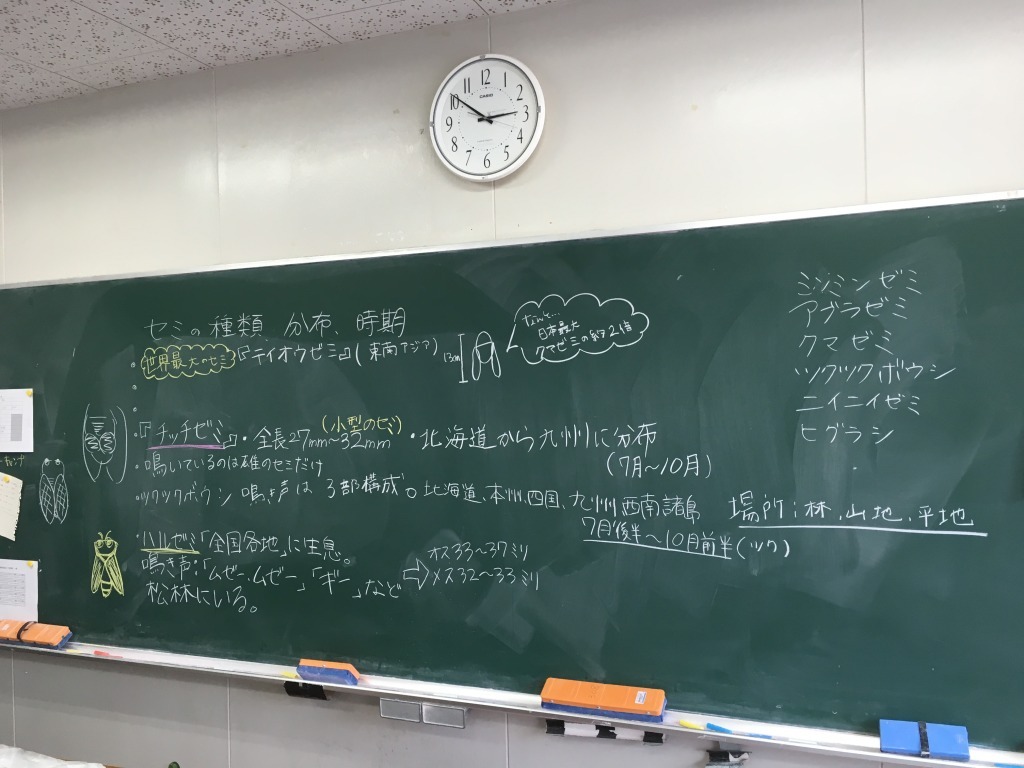 12
1
2
3
4
5
6
7
8
9
10
11
CASIO
セミの種類 分布、時期
世界最大のセミ 『テイオウゼミ』(東南アジア)
13cm
なんと…
日本最大
クマゼミの約2倍
ミンミンゼミ
アブラゼミ
クマゼミ
ツクツクボウシ
ニイニイゼミ
ヒグラシ
(小型のセミ)
『チッチゼミ』・全長27mm~32mm・北海道から九州に分布
(7月~10月)
・鳴いているのは雄のセミだけ
・ツクツクボウシ 鳴き声は3部構成。北海道、本州、四国、九州 西南諸島 場所:林、山地、平地
7月後半~10月前半(ツク)
・ハルゼミ「全国各地」に生息。
鳴き声:「ムゼー、ムゼー」「ギー」など
松林にいる。
⇨オス33~37ミリ
メス32~33ミリ